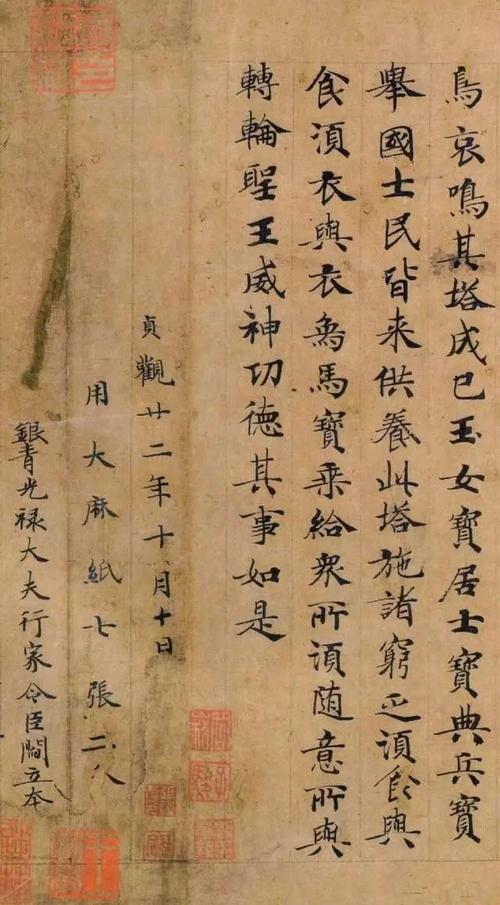 鳥哀鳴其塔成已玉女寶居士寶典兵寶
舉國士民皆来供養此塔施諸窮乏湏飲與
食湏衣與衣象馬寶乗給衆所湏随意所與
轉輪聖王威神功德其事如是
貞觀廿二年十月十日
用大麻紙七張二分
銀青光禄大夫行家令臣閻立本